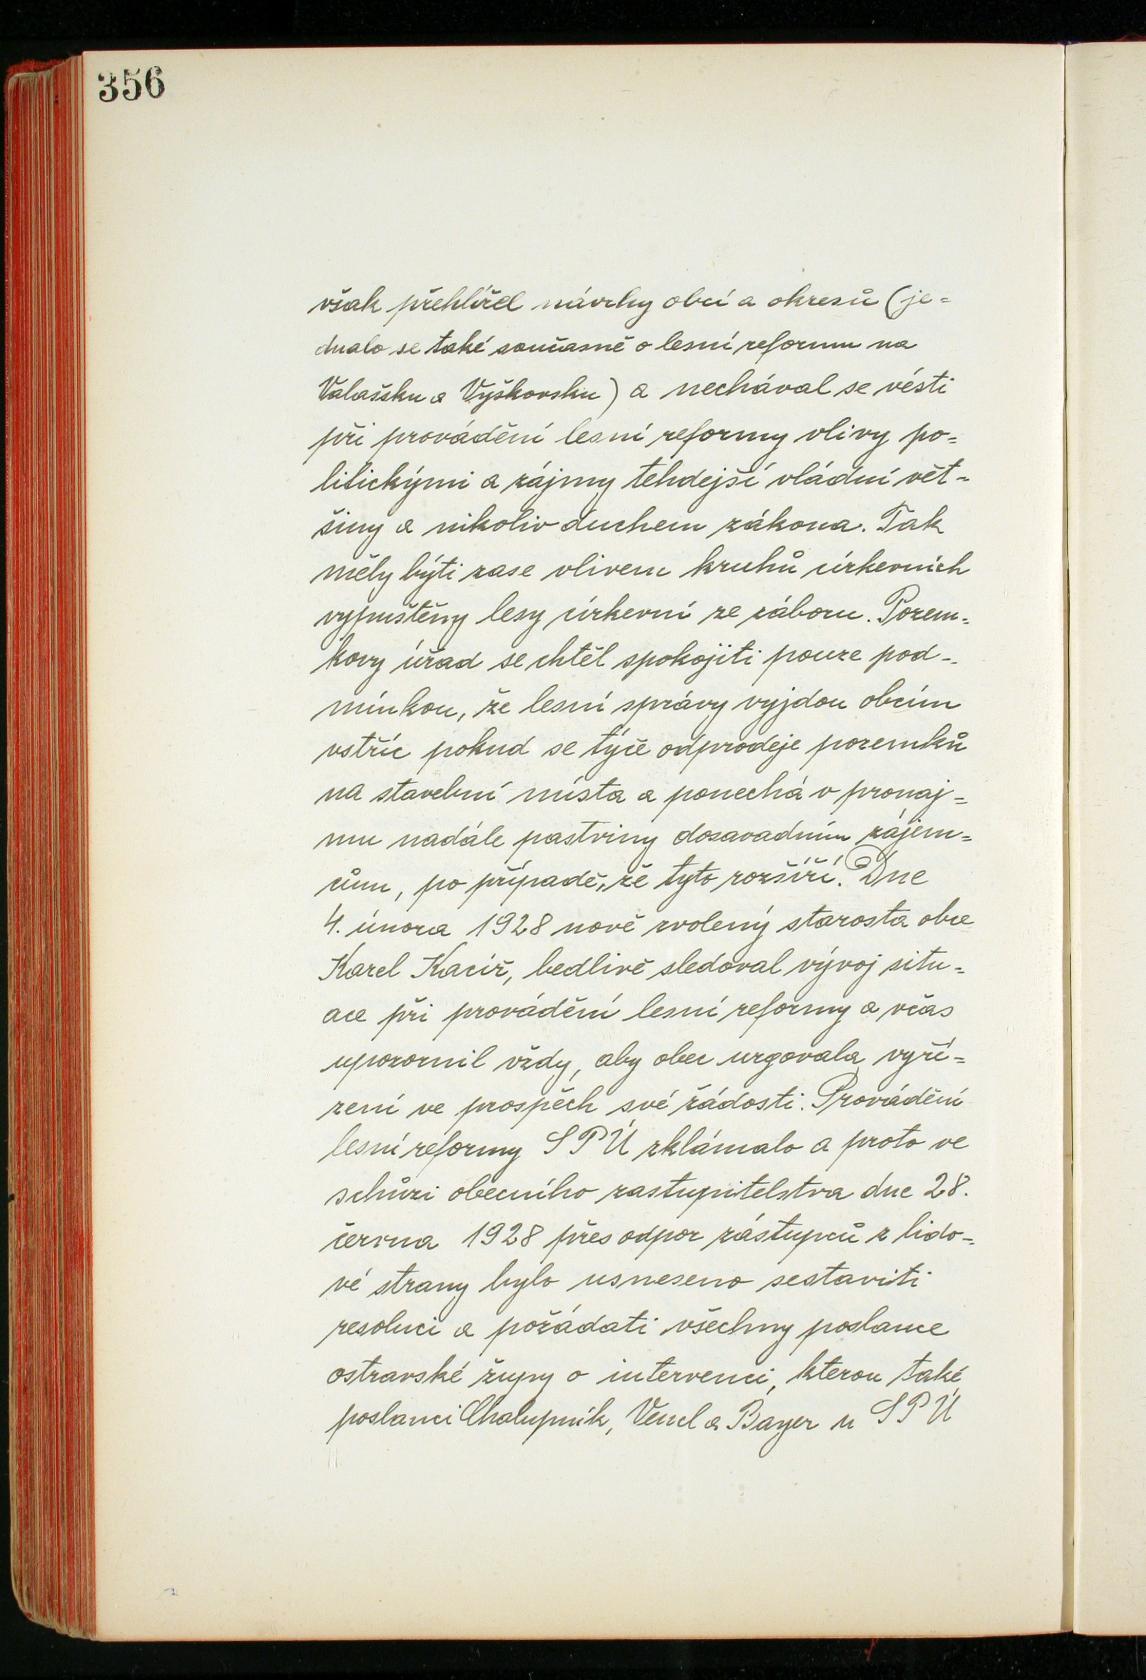 356
však přehlížel návrhy obcí a okresů (je=
dnalo se také současně o lesní reformu na
Valašsku a Vyškovsku) a nechával se vésti
při provádění lesní reformy vlivy po=
litickými a zájmy tehdejší vládní vět=
šiny a nikoliv duchem zákona. Tak
měly býti zase vlivem kruhů církevních
vypuštěny lesy církevní ze záboru. Pozem=
kovy úřad se chtěl spokojiti pouze pod=
mínkou, že lesní správy vyjdou obcím
vstříc pokud se týče odprodeje pozemků
na stavební místa a ponechá v pronaj=
mu nadále pastviny dosavadním zájem=
cům, po případě, že tyto rozšíří. Dne
4. února 1928 nově zvolený starosta obce
Karel Kacíř, bedlivě sledoval vývoj situ=
ace při provádění lesní reformy a včas
upozornil vždy, aby obec urgovala vyří=
zení ve prospěch své žádosti. Provádění
lesní reformy SPÚ zklámalo a proto ve
schůzi obecního zastupitelstva dne 28.
června 1928 přes odpor zástupců z lido=
vé strany bylo usneseno sestaviti
resoluci a požádati všechny poslance
ostravské župy o intervenci, kterou také
poslanci Chalupník, Vencl a Bayer u SPÚ